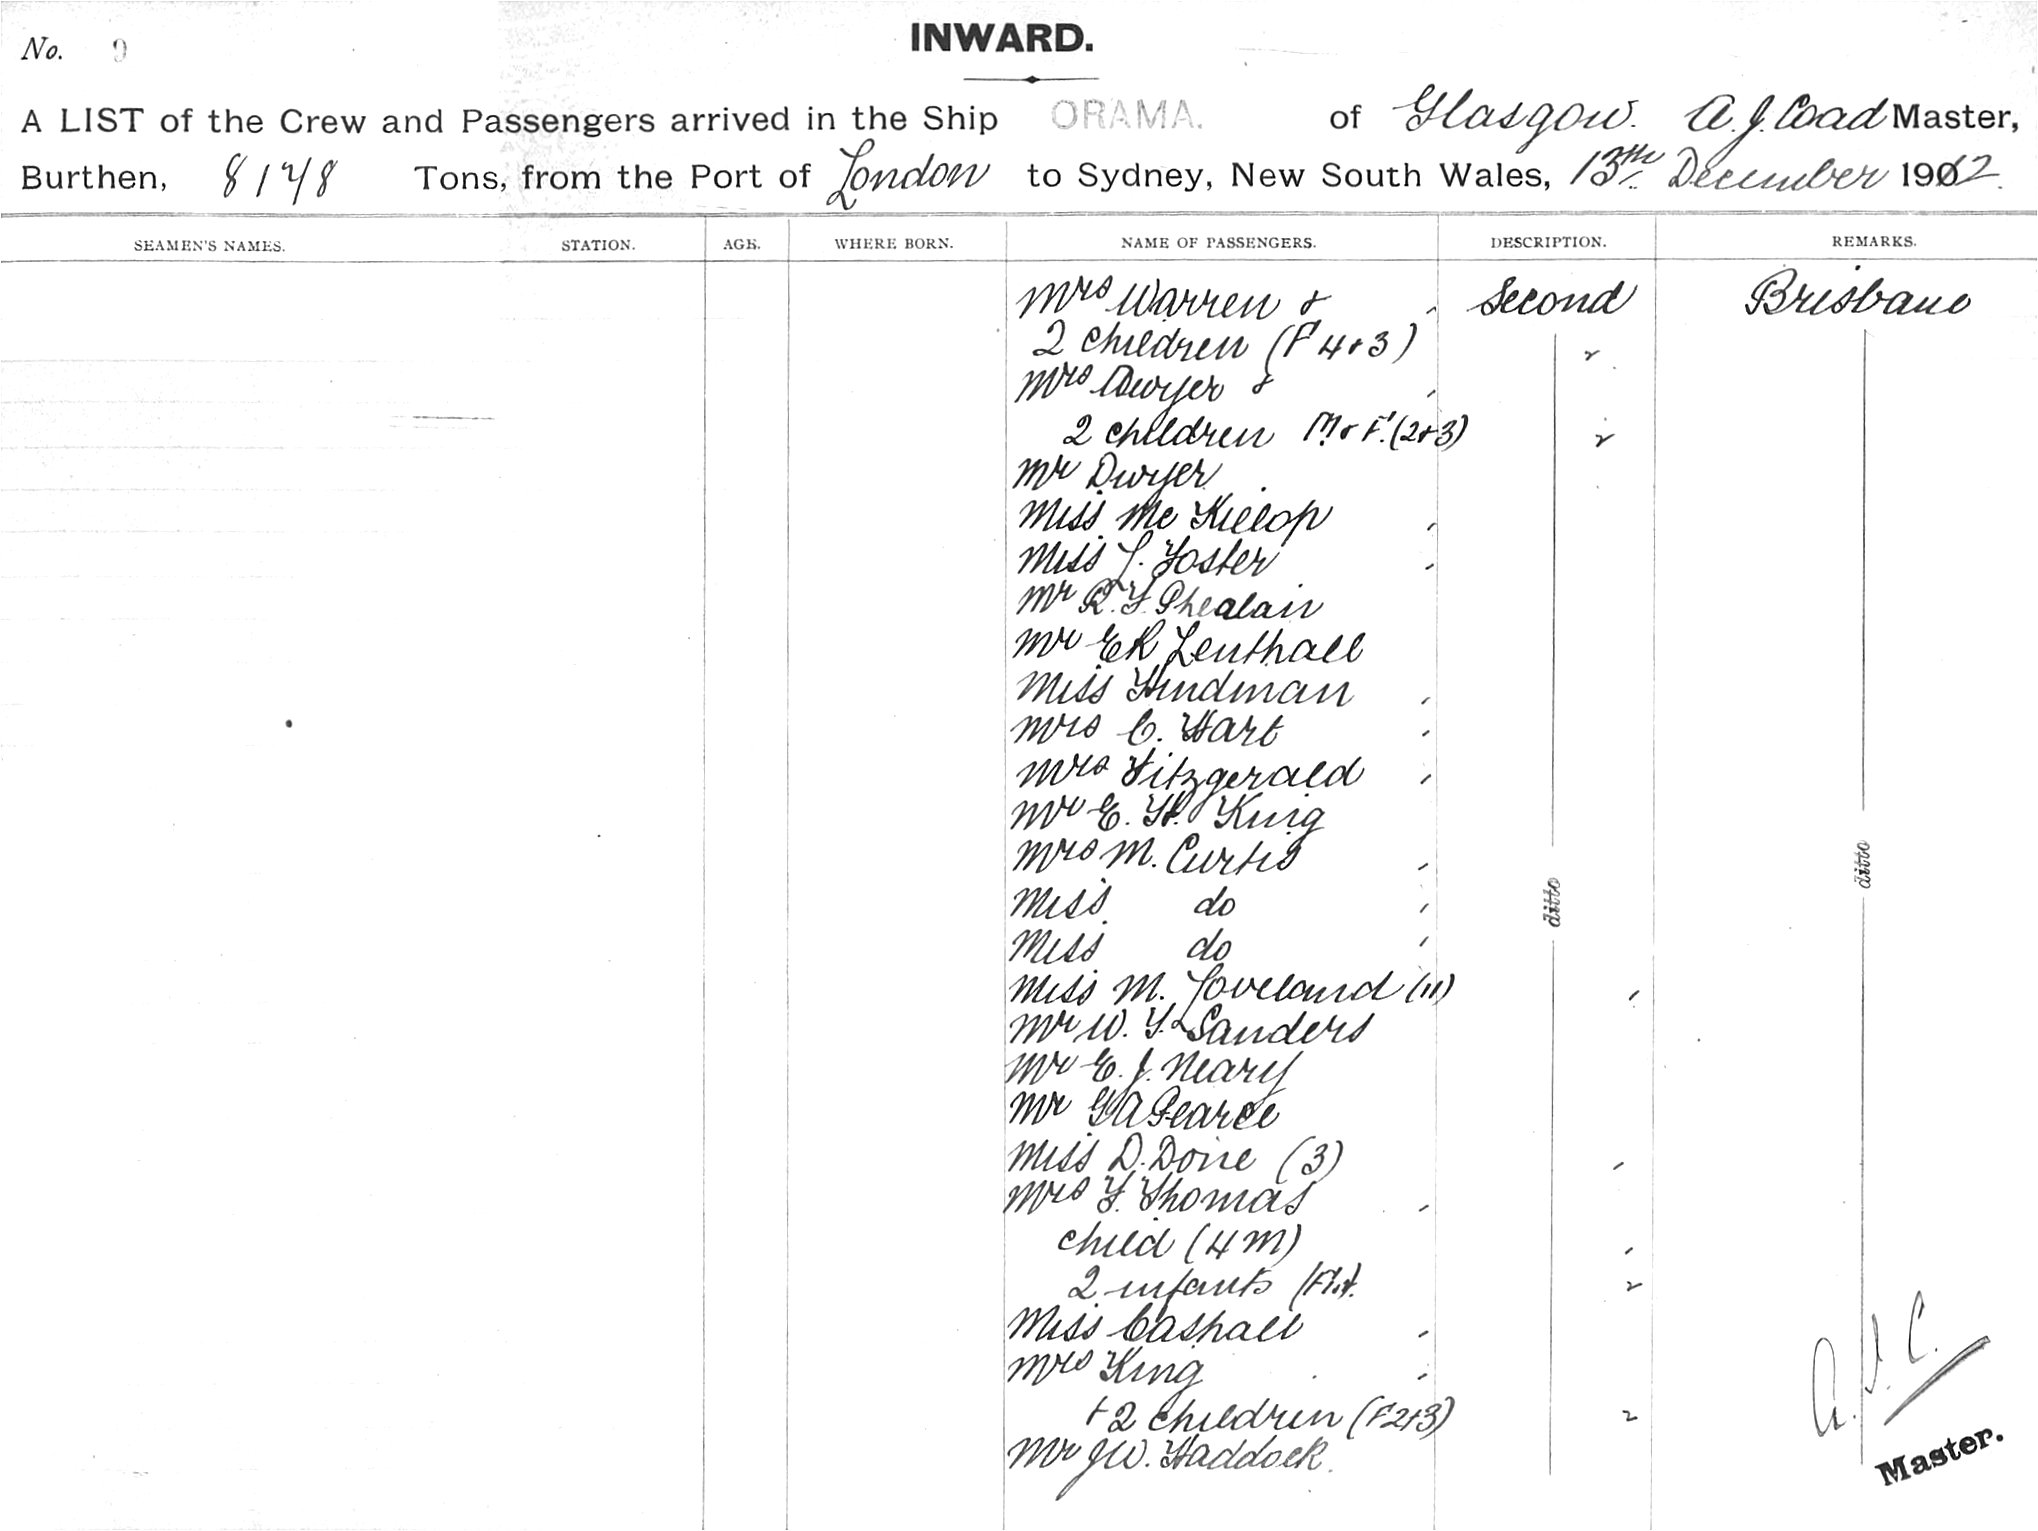 No. 9
INWARD.
A LIST of the Crew and Passengers arrived in the Ship ORAMA. of Glasgow. A. J. Coad Master,
Burthen, 8148 Tons, from the Port of London to Sydney, New South Wales, 13th December 1912.
SEAMEN'S NAMES. STATION. AGE. WHERE BORN. NAME OF PASSENGERS. DESCRIPTION. REMARKS.
Mrs Warren & Second Brisbane
2 children (F 4 & 3) 2
Mrs Dwyer &
2 children M & F. (2 & 3) 2
Mr Dwyer
Miss McKillop
Miss L. Foster
Mr R. F. Phealain
Mr E R Lenthall
Miss Hindman
Mrs C. Hart
Mrs Fitzgerald
Mr E. H. King
Mrs M. Curtis
Miss do
Miss do
ditto ditto
Miss M. Loveland (11)
Mr W. F. Sanders
Mr E. J. Neary
Mr G A Pearce
Miss D. Doire (3)
Mrs F. Thomas
child (4 M)
2 infants 2
Miss Cashall
Mrs King
+ 2 children (F 2 + 3) 2
Mr J W. Haddock.
A. J. C.
Master.